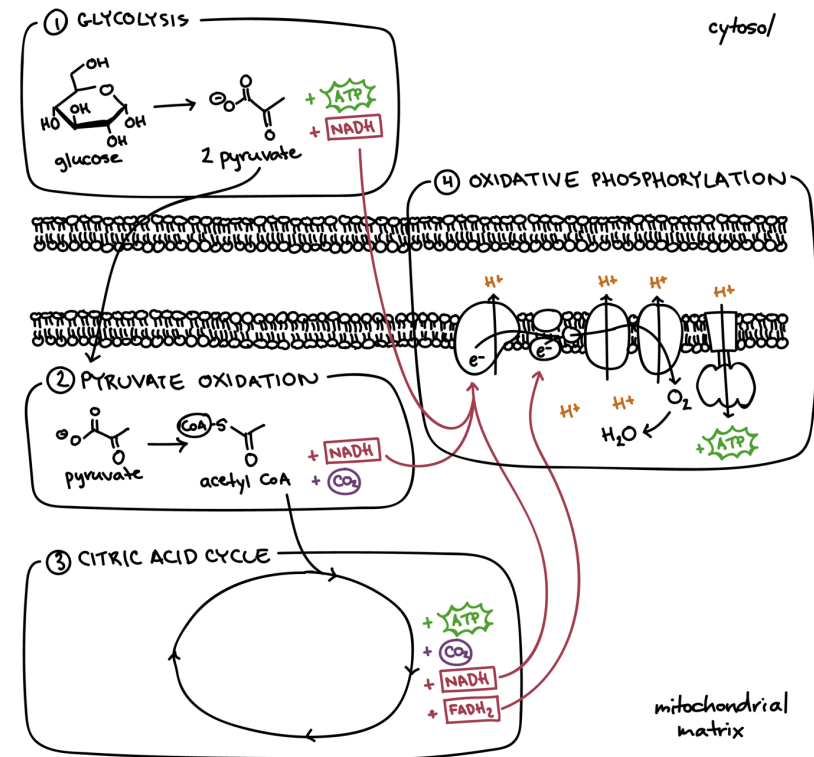 ① GLYCOLYSIS
cytosol
OH
O
OH
HO
OH
OH
glucose
⊖O
O
O
2 pyruvate
+ ATP
+ NADH
④ OXIDATIVE PHOSPHORYLATION
H+
H+
H+
H+
e-
e-
H+
H+
O₂
H₂O
+ ATP
② PYRUVATE OXIDATION
⊖O
O
O
pyruvate
CoA-S
O
acetyl CoA
+ NADH
+ CO₂
③ CITRIC ACID CYCLE
+ ATP
+ CO₂
+ NADH
+ FADH₂
mitochondrial
matrix